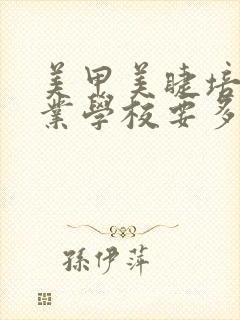 美甲美睫培
業學校要多
孫伊萍